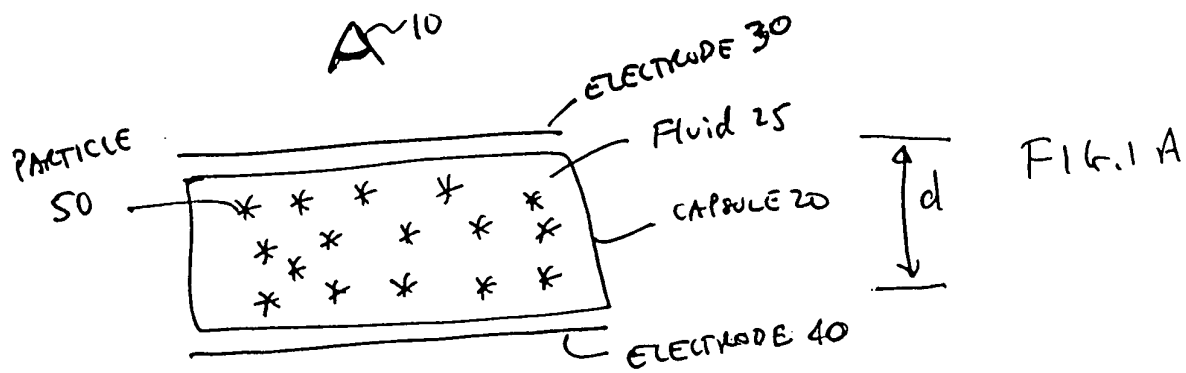 A 10
ELECTRODE 30
Fluid 25
PARTICLE
50
CAPSULE 20
d
FIG. 1 A
ELECTRODE 40